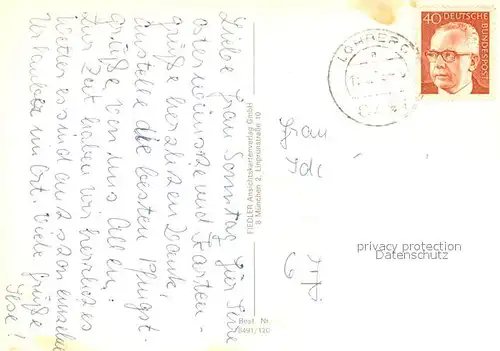 Liebe Frau Sonntag! Für Ihre
Osterwünsche und Karten-
grüße herzlichen Dank,
anstelle die besten Pfingst-
grüße, von uns Allen.
Zur Zeit haben wir herrliches
Wetter es sind auch schon einzelne
Urlauber im Ort. Viele Grüße
Ilse!
FIEDLER Ansichtskartenverlag GmbH
8 München 2, Linprunstraße 10
Best. Nr.
8491/120
40 DEUTSCHE
BUNDESPOST
Frau
privacy protection
Datenschutz